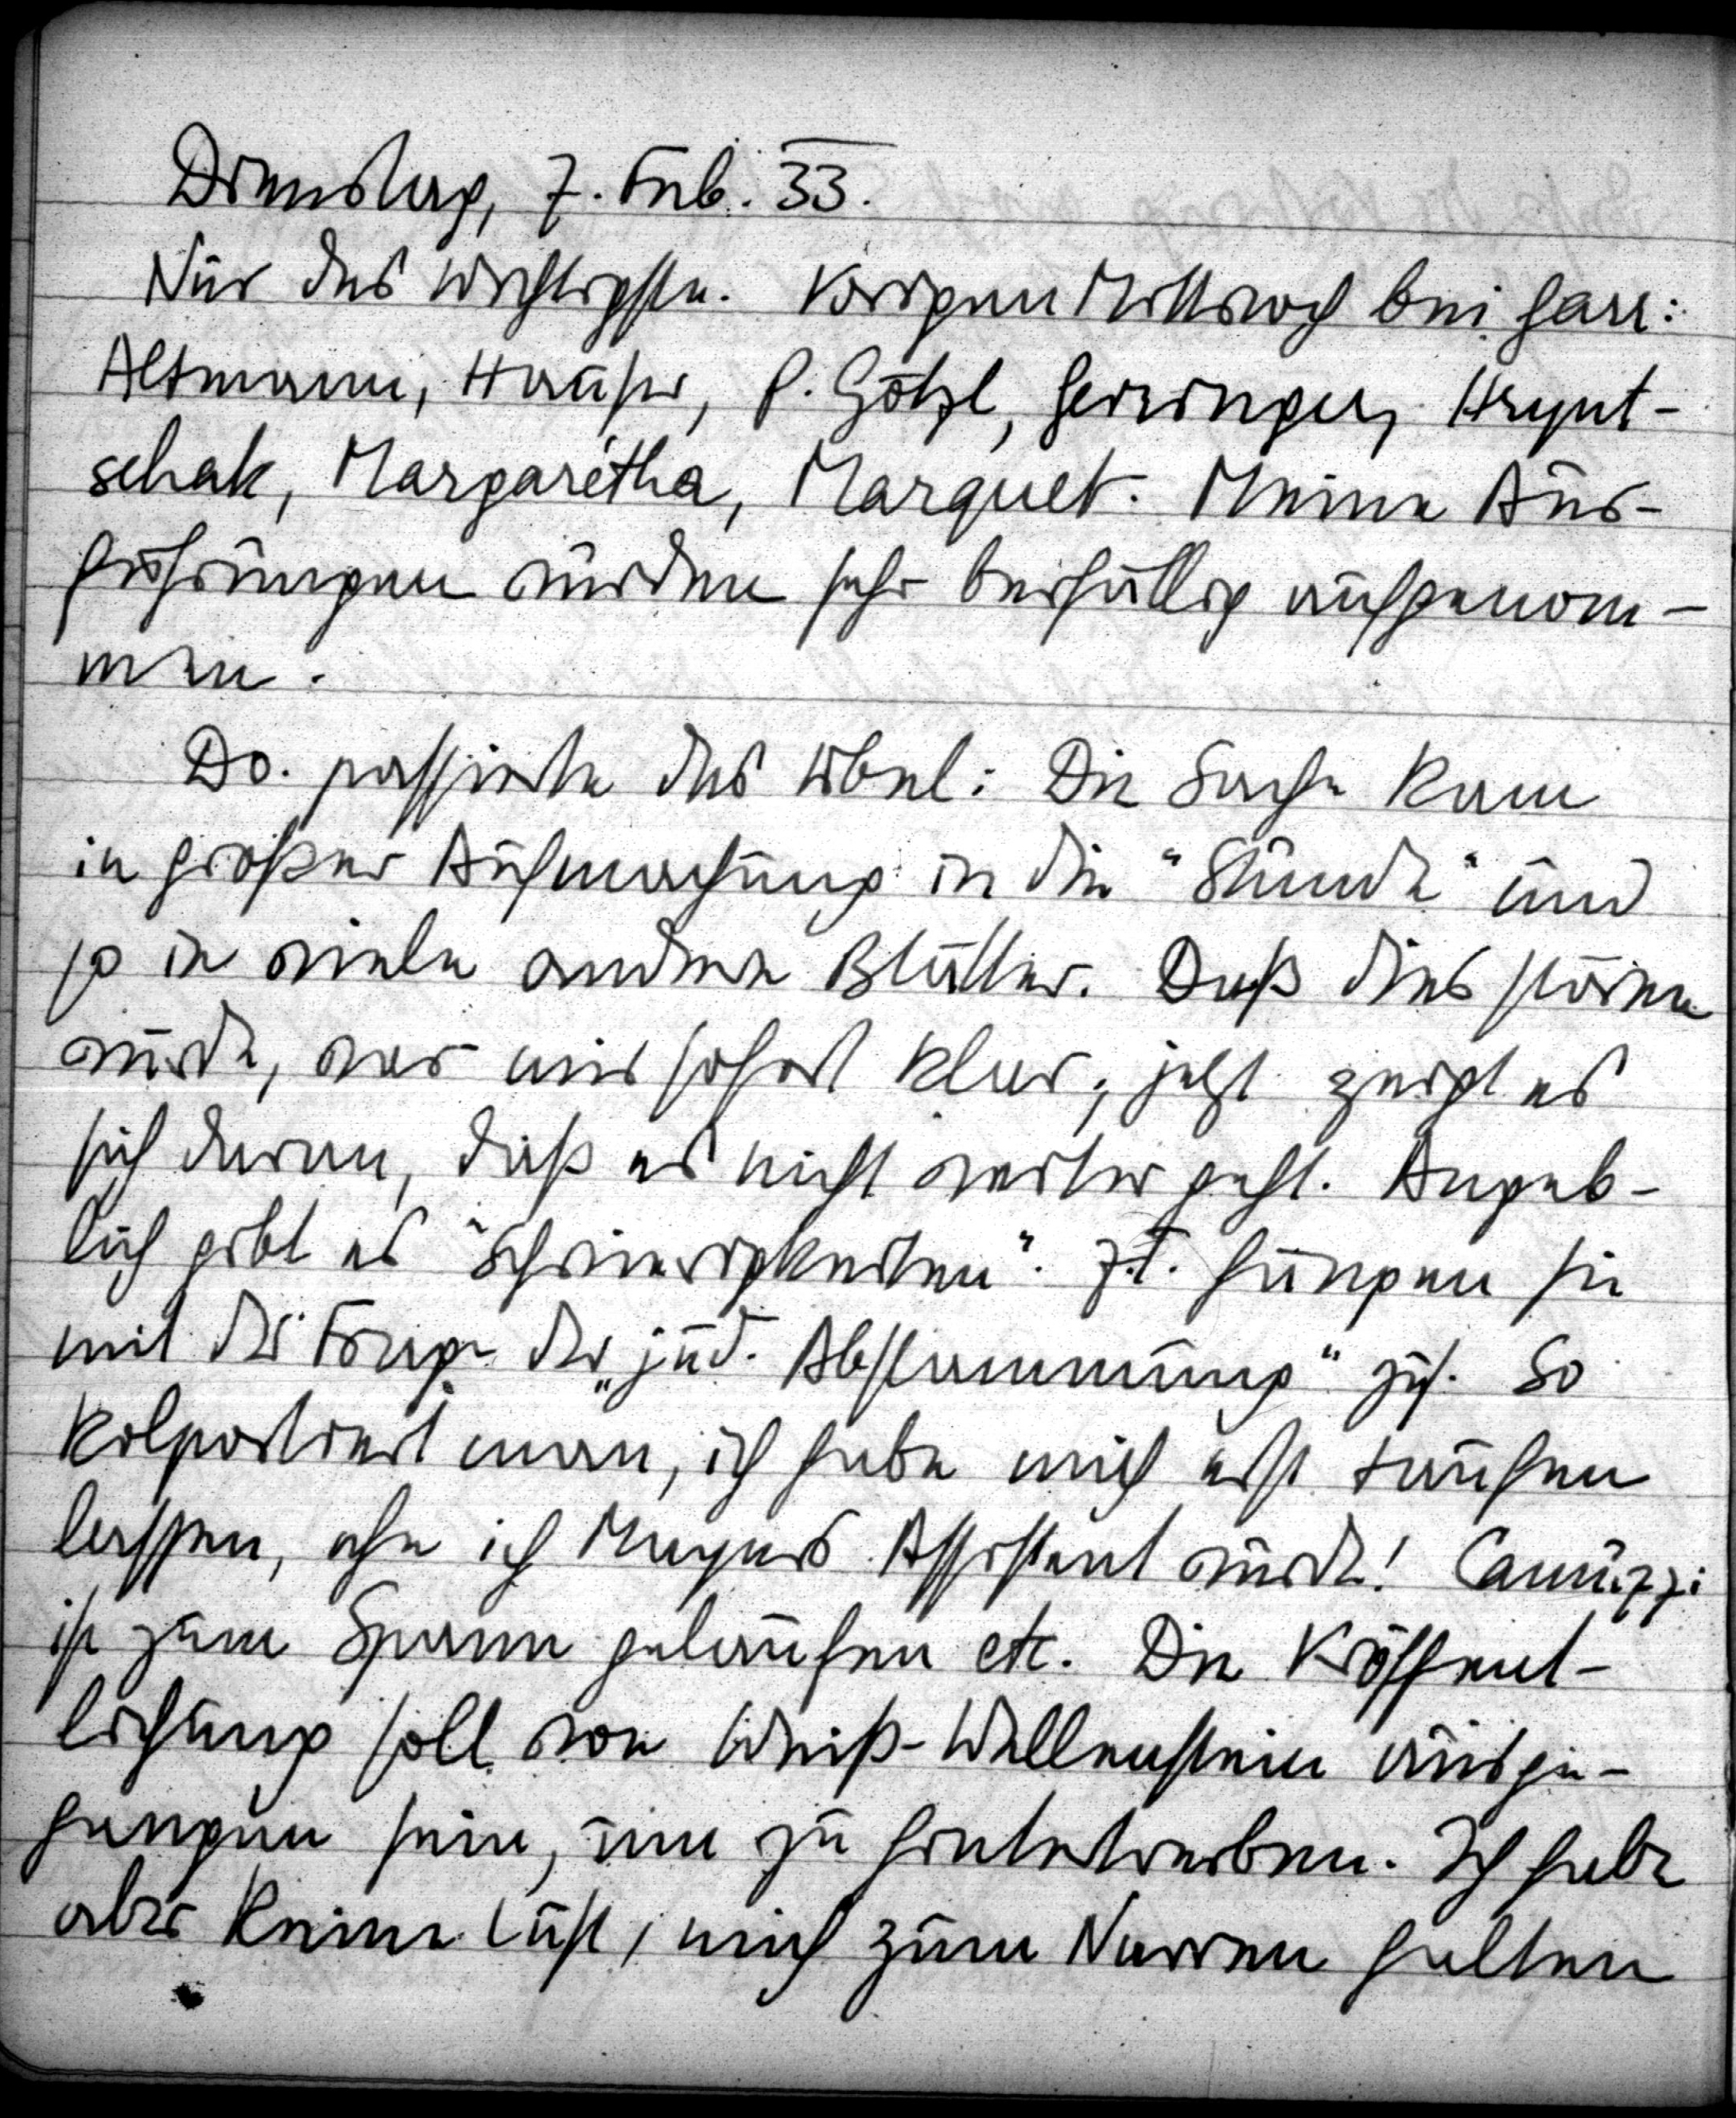 Dienstag, 7. Feb. 33.
Nur das Wichtigste. Vorigen Mittwoch bei Harr:
Altmann, Hauser, P. Götzl, Geiringer, Hrynt-
schak, Margarétha, Marquet. Meine Aus-
führungen wurden sehr beifällig aufgenom-
men.
Do. passierte das Übel: Die Sache kam
in großer Aufmachung in die "Stunde" und
so in viele andere Blätter. Daß dies stören
würde, war mir sofort klar; jetzt zeigt es
sich daran, daß es nicht weiter geht. Angeb-
lich gibt es "Schwierigkeiten". z.T. hängen sie
mit der Frage der „jüd. Abstammung" zus. So
kolportiert man, ich habe mich erst taufen
lassen, ehe ich Mayers Assistent wurde! Camuzzi
ist zum Spann gelaufen etc. Die Veröffent-
lichung soll von Weiß-Wellenstein ausge-
gangen sein, um zu hintertreiben. Ich habe
aber keine Lust, mich zum Narren halten